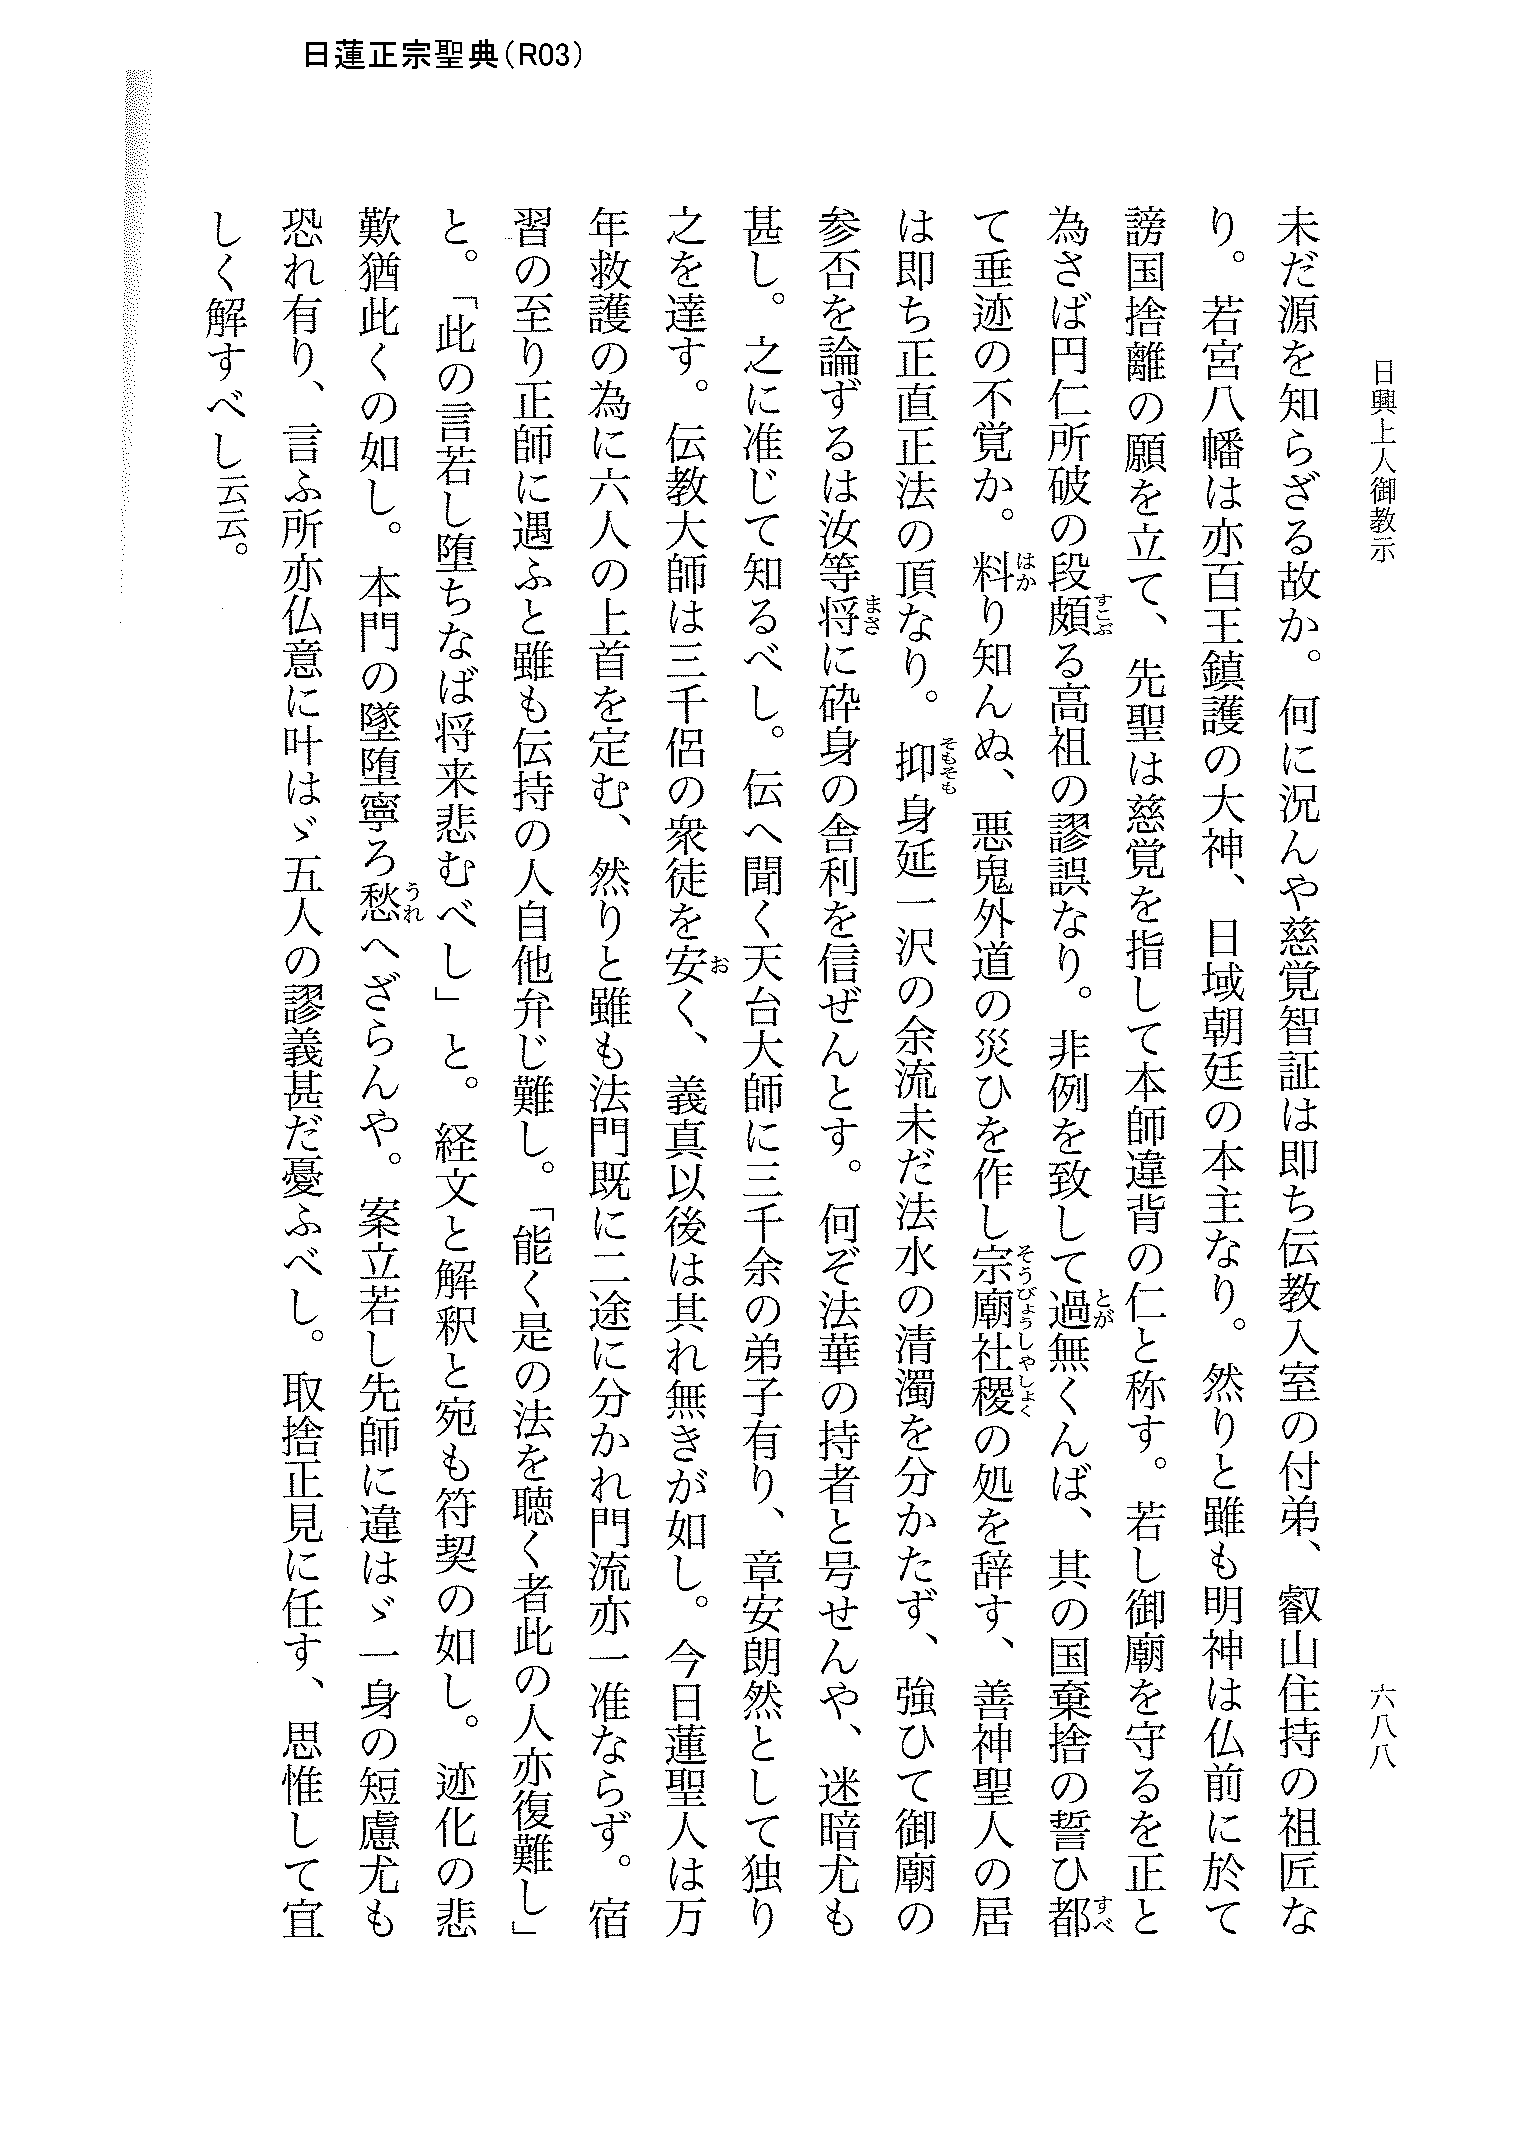 日蓮正宗聖典（R03）
日興上人御教示
六八八
未だ源を知らざる故か。何に況んや慈覚智証は即ち伝教入室の付弟、叡山住持の祖匠な
り。若宮八幡は亦百王鎮護の大神、日域朝廷の本主なり。然りと雖も明神は仏前に於て
謗国捨離の願を立て、先聖は慈覚を指して本師違背の仁と称す。若し御廟を守るを正と
為さば円仁所破の段頗る高祖の謬誤なり。非例を致して過無くんば、其の国棄捨の誓ひ都
て垂迹の不覚か。料り知んぬ、悪鬼外道の災ひを作し宗廟社稷の処を辞す、善神聖人の居
は即ち正直正法の頂なり。抑身延一沢の余流未だ法水の清濁を分かたず、強ひて御廟の
参否を論ずるは汝等将に砕身の舎利を信ぜんとす。何ぞ法華の持者と号せんや、迷暗尤も
甚し。之に准じて知るべし。伝へ聞く天台大師に三千余の弟子有り、章安朗然として独り
之を達す。伝教大師は三千侶の衆徒を安く、義真以後は其れ無きが如し。今日蓮聖人は万
年救護の為に六人の上首を定む、然りと雖も法門既に二途に分かれ門流亦一准ならず。宿
習の至り正師に遇ふと雖も伝持の人自他弁じ難し。「能く是の法を聴く者此の人亦復難し」
と。「此の言若し堕ちなば将来悲むべし」と。経文と解釈と宛も符契の如し。迹化の悲
歎猶此くの如し。本門の墜堕寧ろ愁へざらんや。案立若し先師に違はゞ一身の短慮尤も
恐れ有り、言ふ所亦仏意に叶はゞ五人の謬義甚だ憂ふべし。取捨正見に任す、思惟して宜
しく解すべし云云。